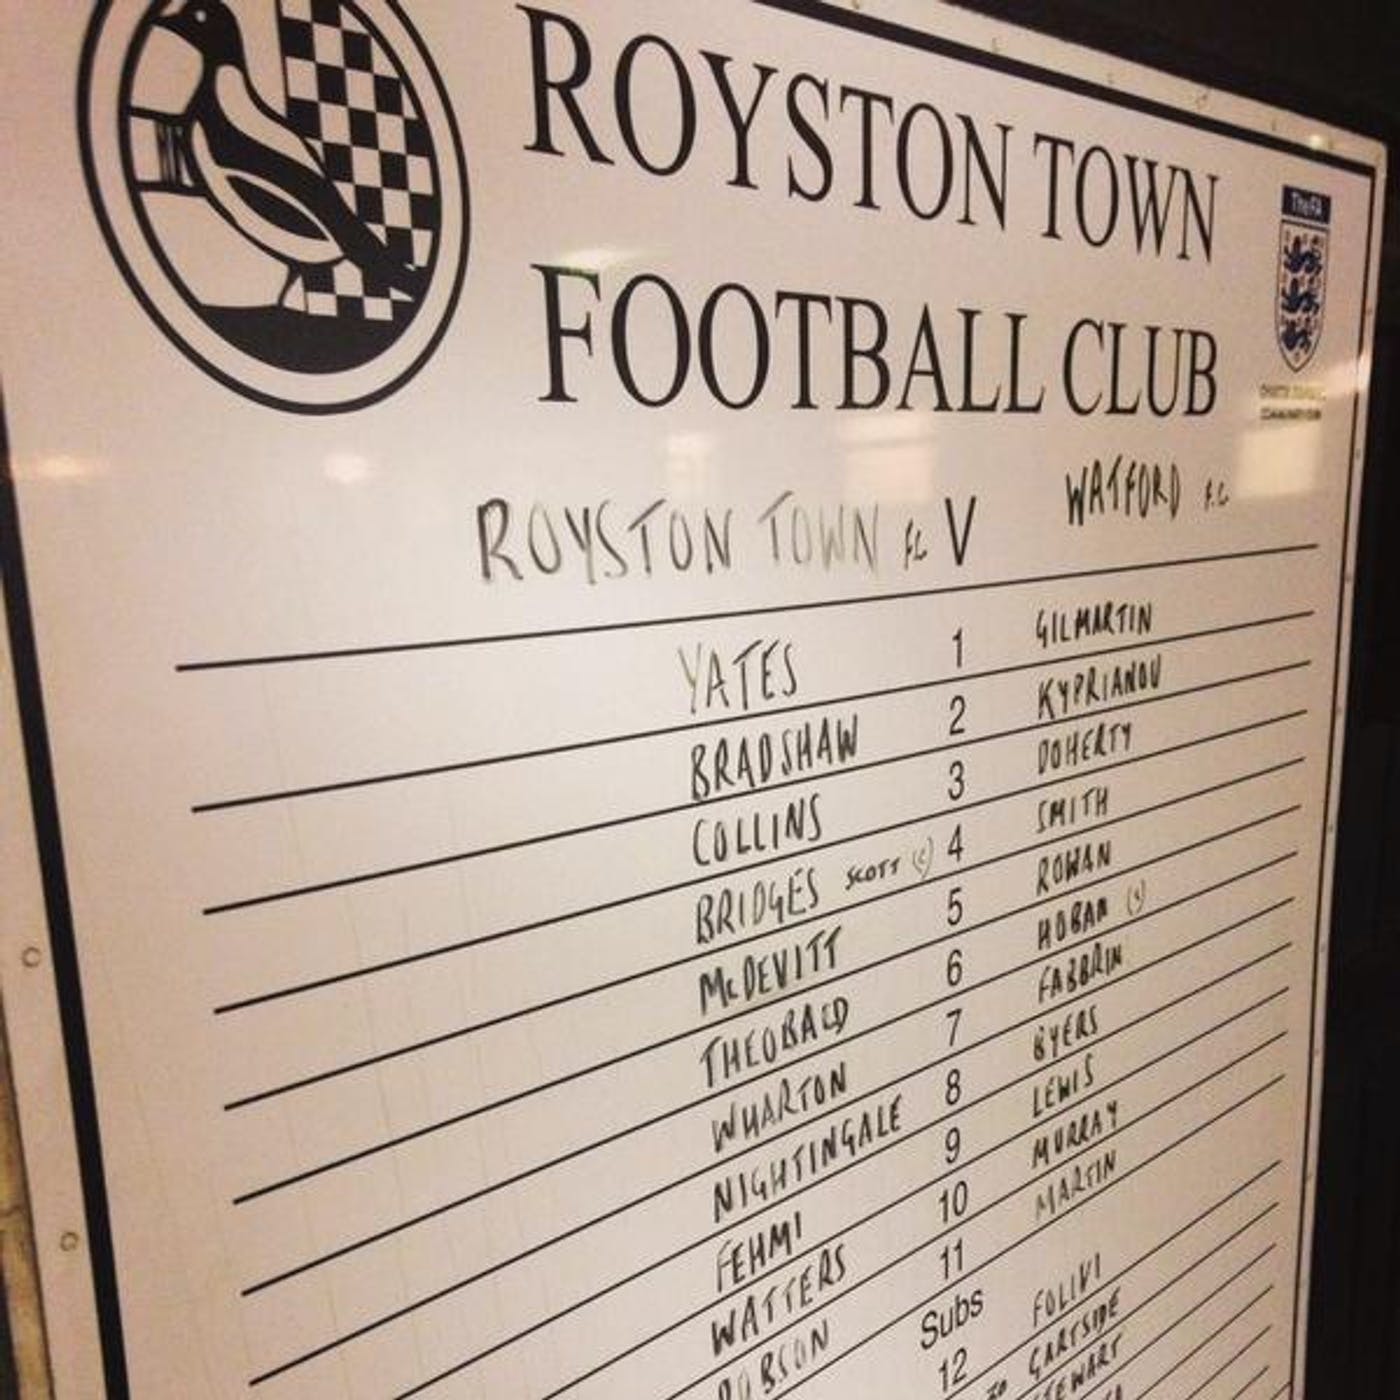 ROYSTON TOWN
FOOTBALL CLUB
The FA
ROYSTON TOWN FC V WATFORD F.C
YATES 1 GILMARTIN
BRADSHAW 2 KYPRIANOU
COLLINS 3 DOHERTY
BRIDGES SCOTT (S) 4 SMITH
McDEVITT 5 ROWAN
THEOBALD 6 HOBAN (S)
WHARTON 7 FABBRIN
NIGHTINGALE 8 BYERS
FEHMI 9 LEWIS
WATTERS 10 MURRAY
ROBSON 11 MARTIN
Subs FOLIVI
12 GARTSIDE
STEWART